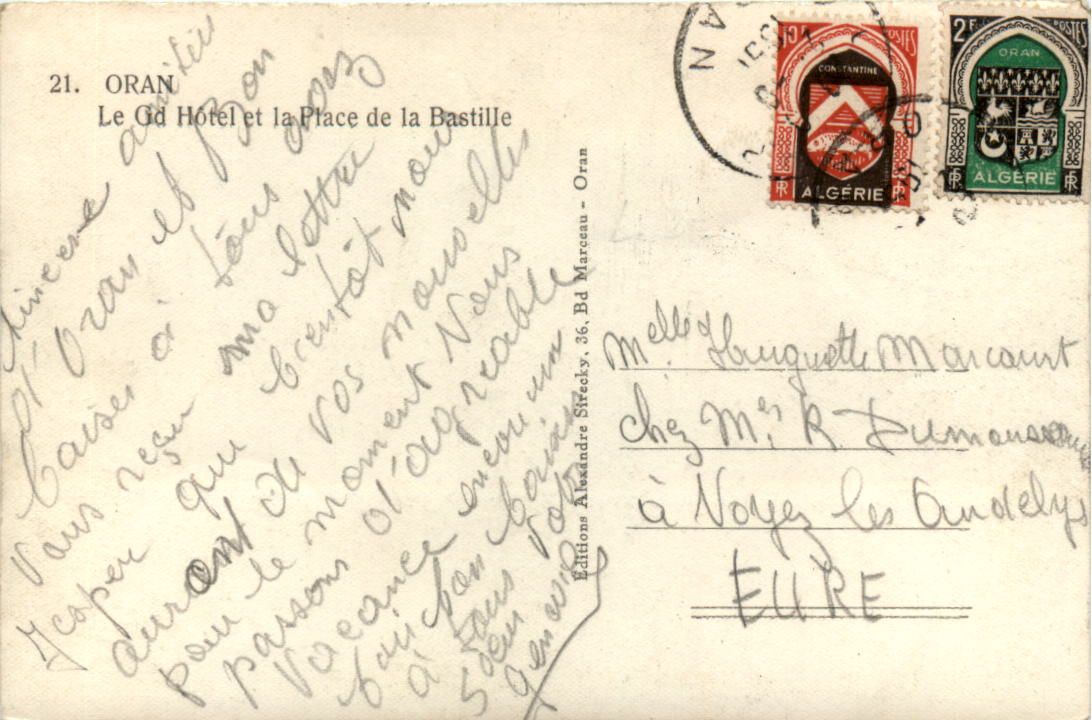 21. ORAN
Le Gd Hôtel et la Place de la Bastille
Sincère amitiés
d'Oran et Bon
baiser à tous avez
vous reçu ma lettre
J'esper que bientôt nous
auront de vos nouvelles
pour le moment Nous
passons d'agréable
vacance encore un
bon baiser
à tous votre
Soeur
Editions Alexandre Sirecky, 36, Bd Marceau - Oran
ORAN
15F POSTES
CONSTANTINE
RF ALGÉRIE RF
2F POSTES
ORAN
RF ALGÉRIE RF
Melle Huguette Marcourt
chez Mr R. Dumoussau
à Noyer les Andelys
EURE